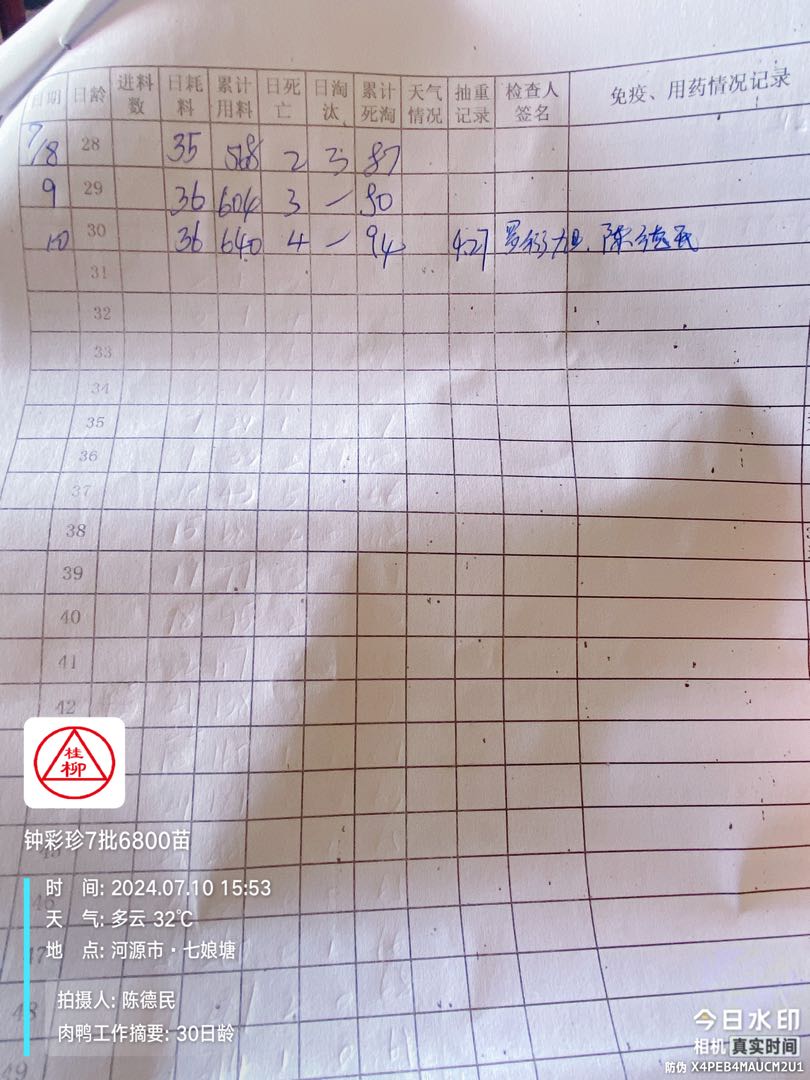 日期 日龄 进料数 日耗料 累计用料 日死亡 日淘汰 累计死淘 天气情况 抽重记录 检查人签名 免疫、用药情况记录
7/8 28 35 568 2 3 87
9 29 36 604 3 — 90
10 30 36 640 4 — 94 4.27 陈德民
31
32
33
34
35
36
37
38
39
40
41
42
桂柳
钟彩珍7批6800苗
46
47
时 间: 2024.07.10 15:53
天 气: 多云 32℃
地 点: 河源市·七娘塘
48
拍摄人: 陈德民
肉鸭工作摘要: 30日龄
49
今日水印
相机 真实时间
防伪 X4PEB4MAUCM2U1